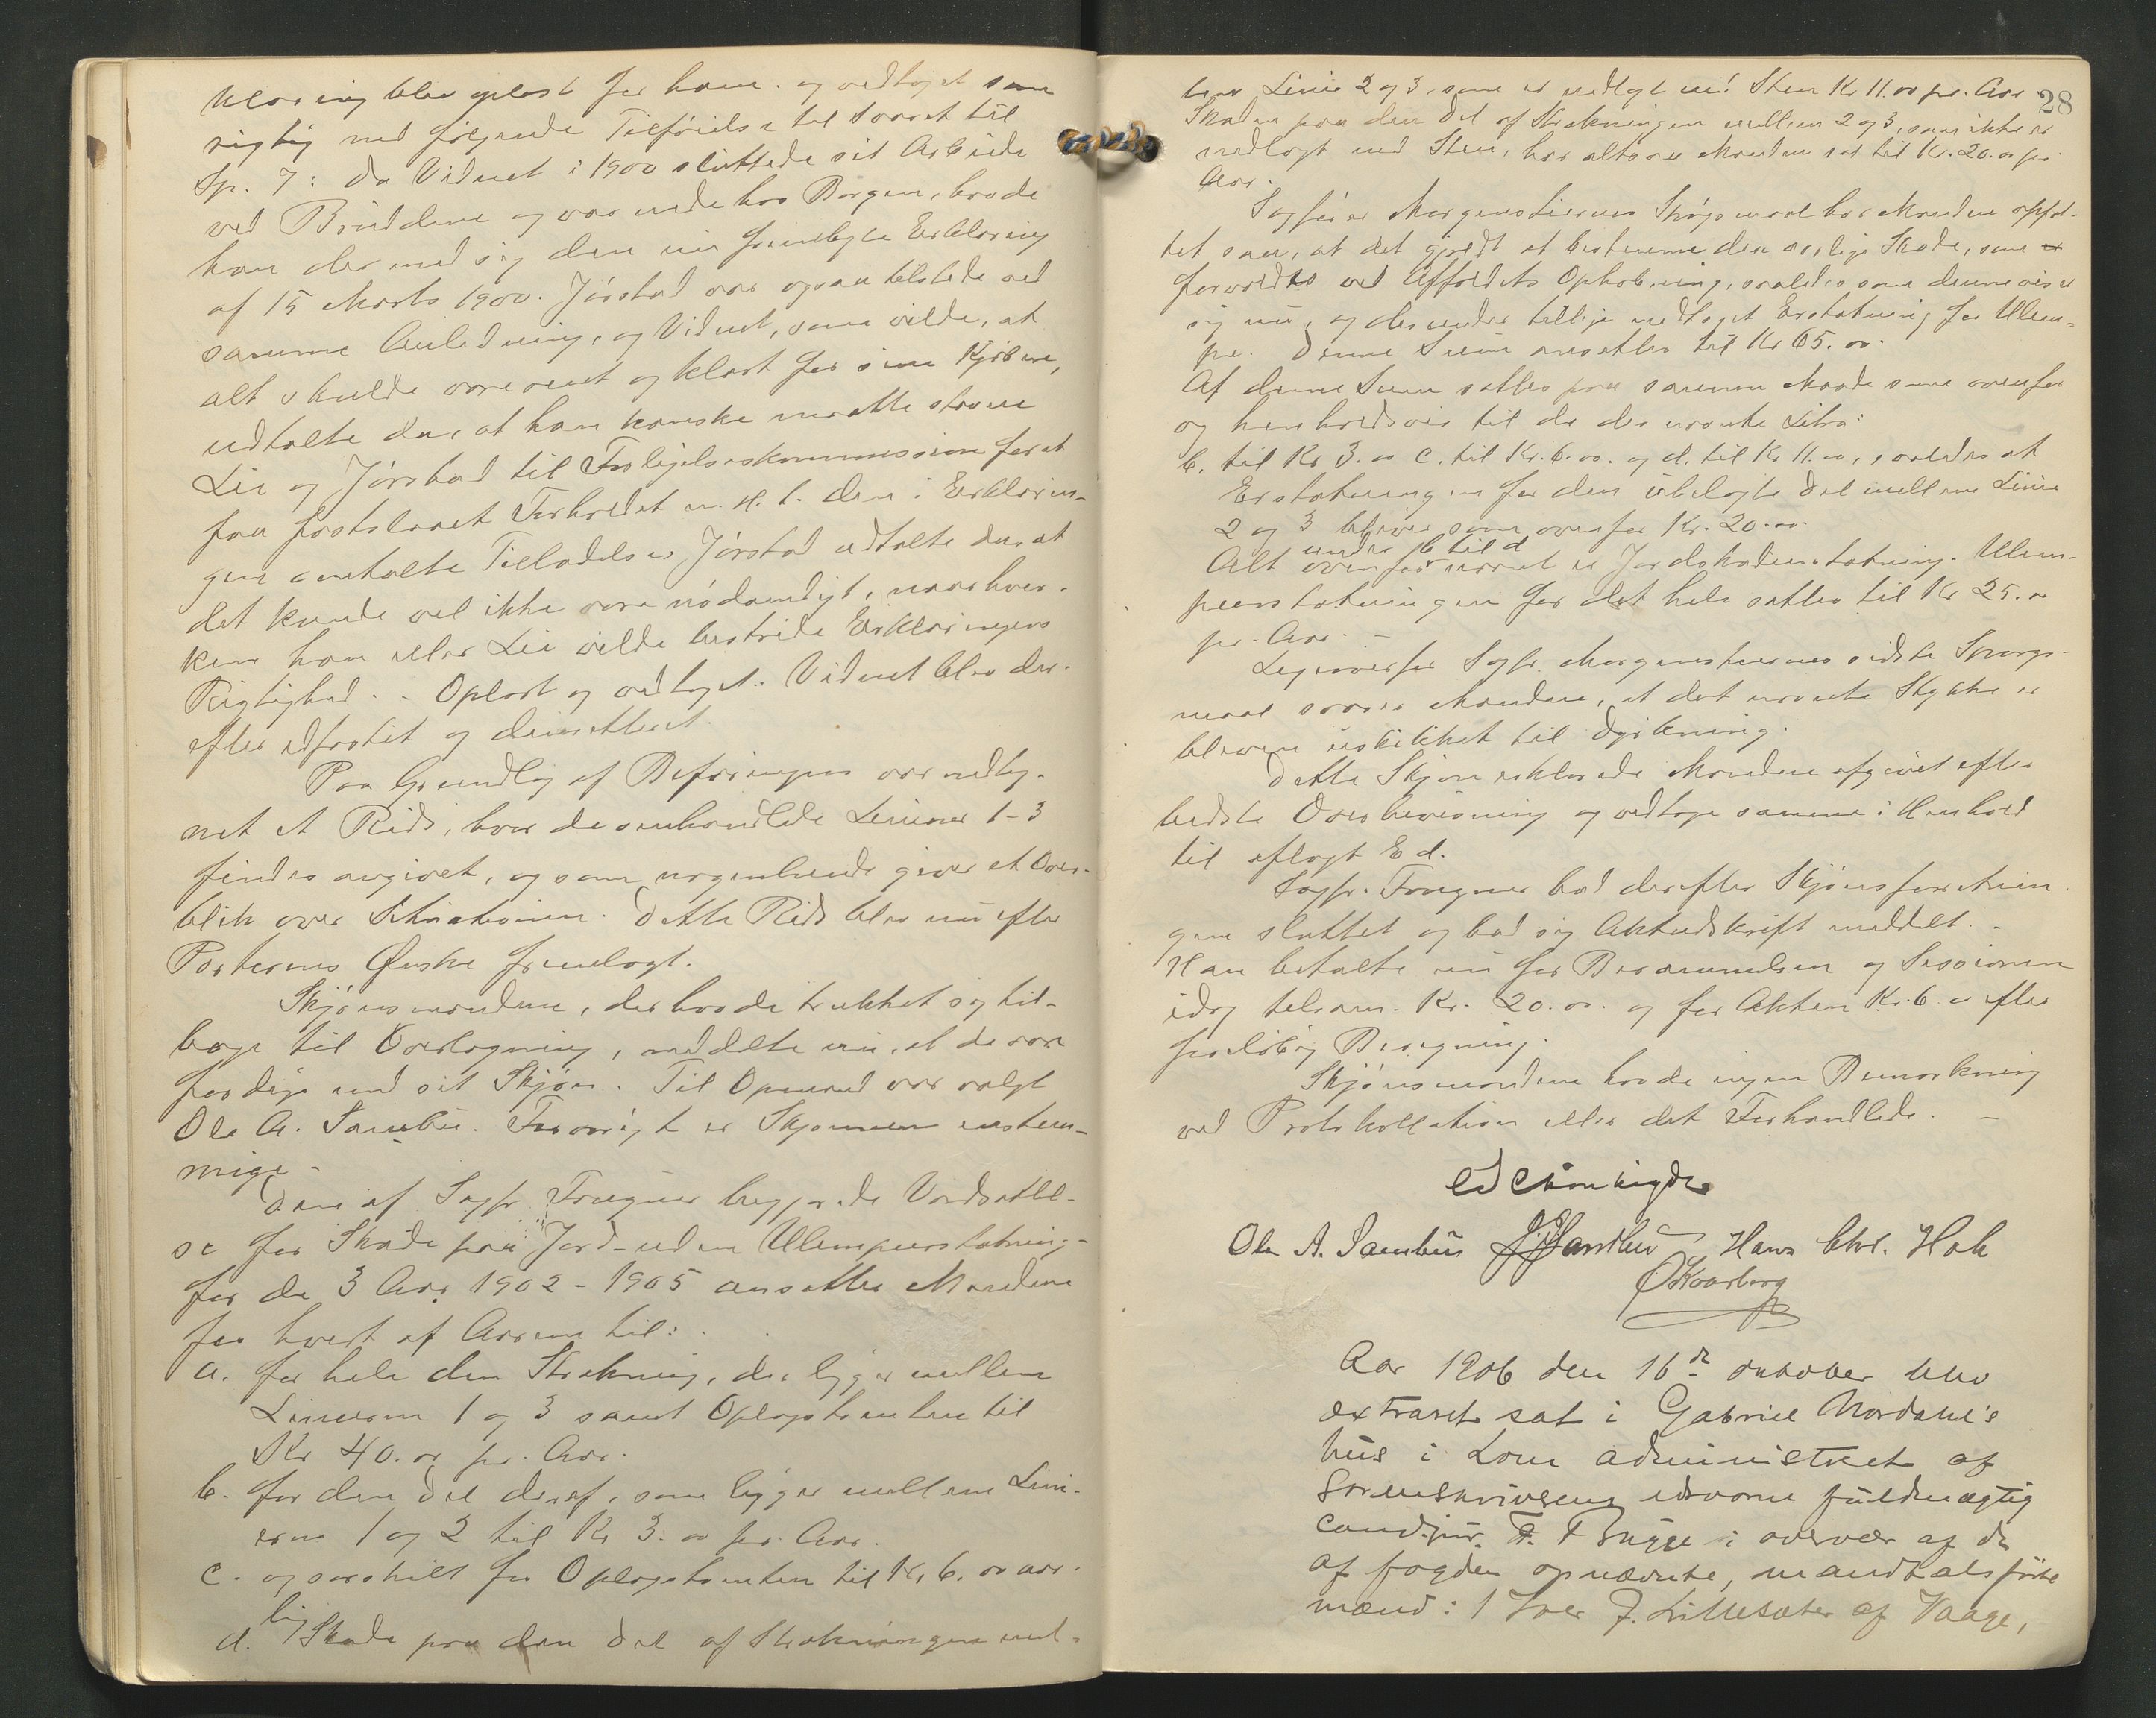 klaring blev oplæst for ham og vedtaget som
rigtig med følgende Tilføielse til Svaret til
Sp. 7: Da Vidnet i 1900 sluttede sit Arbeide
ved Bruddene og var nede hos Borgen, havde
han der med sig den nu fremlagte Erklæring
af 15 Marts 1900. Jörstad var ogsaa tilstede ved
samme Anledning, og Vidnet, som vilde, at
alt skulde være rent og klart for sine Kjöbere,
udtalte da, at han kanske maatte stævne
Lie og Jörstad til Forligelseskommission for at
faa fastslaaet Forholdet m. H. t. den i Erklærin-
gen omtalte Tilladelse. Jörstad udtalte da, at
det kunde vel ikke være nödvendigt, naar hver-
ken han eller Lie vilde bestride Erklæringens
Rigtighed. - Oplæst og vedtaget. Vidnet blev der-
efter edfæstet og dimitteret.
Paa Grundlag af Befaringen var nedteg-
net et Rids, hvor de omhandlede Linier 1-3
findes angivet, og som nogenlunde giver et Over-
blik over Situationen. Dette Rids blev nu efter
Parternes Ønske fremlagt.
Skjönsmændene, der havde trukket sig til-
bage til Overlægning, meddelte nu, at de var
færdige med sit Skjön. Til Opmand var valgt
Ole A. Sambu. Forövrigt er Skjønnet enstem-
mige -
Den af Sagf. Frægner begjærede Værdsættel-
se for Skade paa Jord - uden Ulempeerstatning -
for de 3 Aar 1902 - 1905 ansætter Mændene
for hvert af Aarene til:
a. for hele den Strækning, der ligger mellem
Linierne 1 og 3 samt Oplagstomten til
Kr 40.00 pr. Aar.
b. for den Del deraf, som ligger mellem Lini-
erne 1 og 2 til Kr 3.00 pr. Aar.
c. og særskilt for Oplagstomten til Kr. 6.00 aar-
lig
d. Skade paa den Del af Strækningen mel-
28
lem Linie 2 og 3, som er nedlagt med Sten Kr 11.00 pr. Aar
Skaden paa den Del af Strækningen mellem 2 og 3, som ikke er
nedlagt med Sten, har altsaa Mændene sat til Kr. 20.00 pr.
Aar.
Sagförer Morgenstiernes Spörgsmaal har Mændene opfat-
tet saa, at det gjældt at bestemme den aarlige Skade, som
forvoldes ved Affaldets Ophobning, saaledes som denne viser
sig nu, og derunder tillige medtaget Erstatning for Ulem-
pe. Denne Sum ansættes til Kr 65.00.
Af denne Sum sættes paa samme Maade som ovenfor
og henholdsvis til de der nævnte Litra:
b. til Kr 3.00 c. til Kr. 6.00. og d. til Kr 11.00, saaledes at
Erstatningen for den ubelagte Del mellem Linie
2 og 3 bliver som ovenfor Kr. 20.00.
under b til d
Alt ovenfor nævnt er Jordskadeerstatning. Ulem-
peerstatningen for det hele sættes til Kr 25.00
pr. Aar. -
Ligeoverfor Sagf. Morgenstiernes sidste Spörgs-
maal svarer Mændene, at det nævnte Stykke er
bleven uskikket til Dyrkning.
Dette Skjøn erklærede Mændene afgivet efter
bedste Overbevisning og vedtoge samme i Henhold
til aflagt Ed.
Sagf. Frægner bad derefter Skjönsforretnin-
gen sluttet og bad sig Aktudskrift meddelt. -
Han betalte nu for Berammelsen og Sessionen
idag tilsam. Kr. 20.00. og for Akten Kr. 6.00 efter
forelöbig Beregning.
Skjönsmændene havde ingen Bemærkning
ved Protokollation eller det Forhandlede. -
Ole A. Sambu Hans Chr. Hole
Aar 1906 den 16de oktober blev
extraret sat i Gabriel Mordahl's
hus i Lom administreret af
Sorenskriverens edsvorne fuldmægtig
cand. jur. F. Brügge i overvær af de
af fogden opnævnte, mandtalsførte
mænd: 1 Iver J. Lillesæter af Vaage,